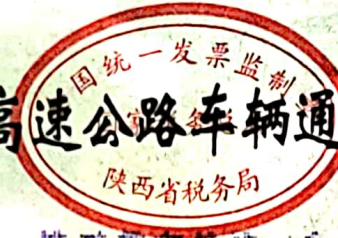 国统一发票监制
高速公路车辆通
陕西省税务局